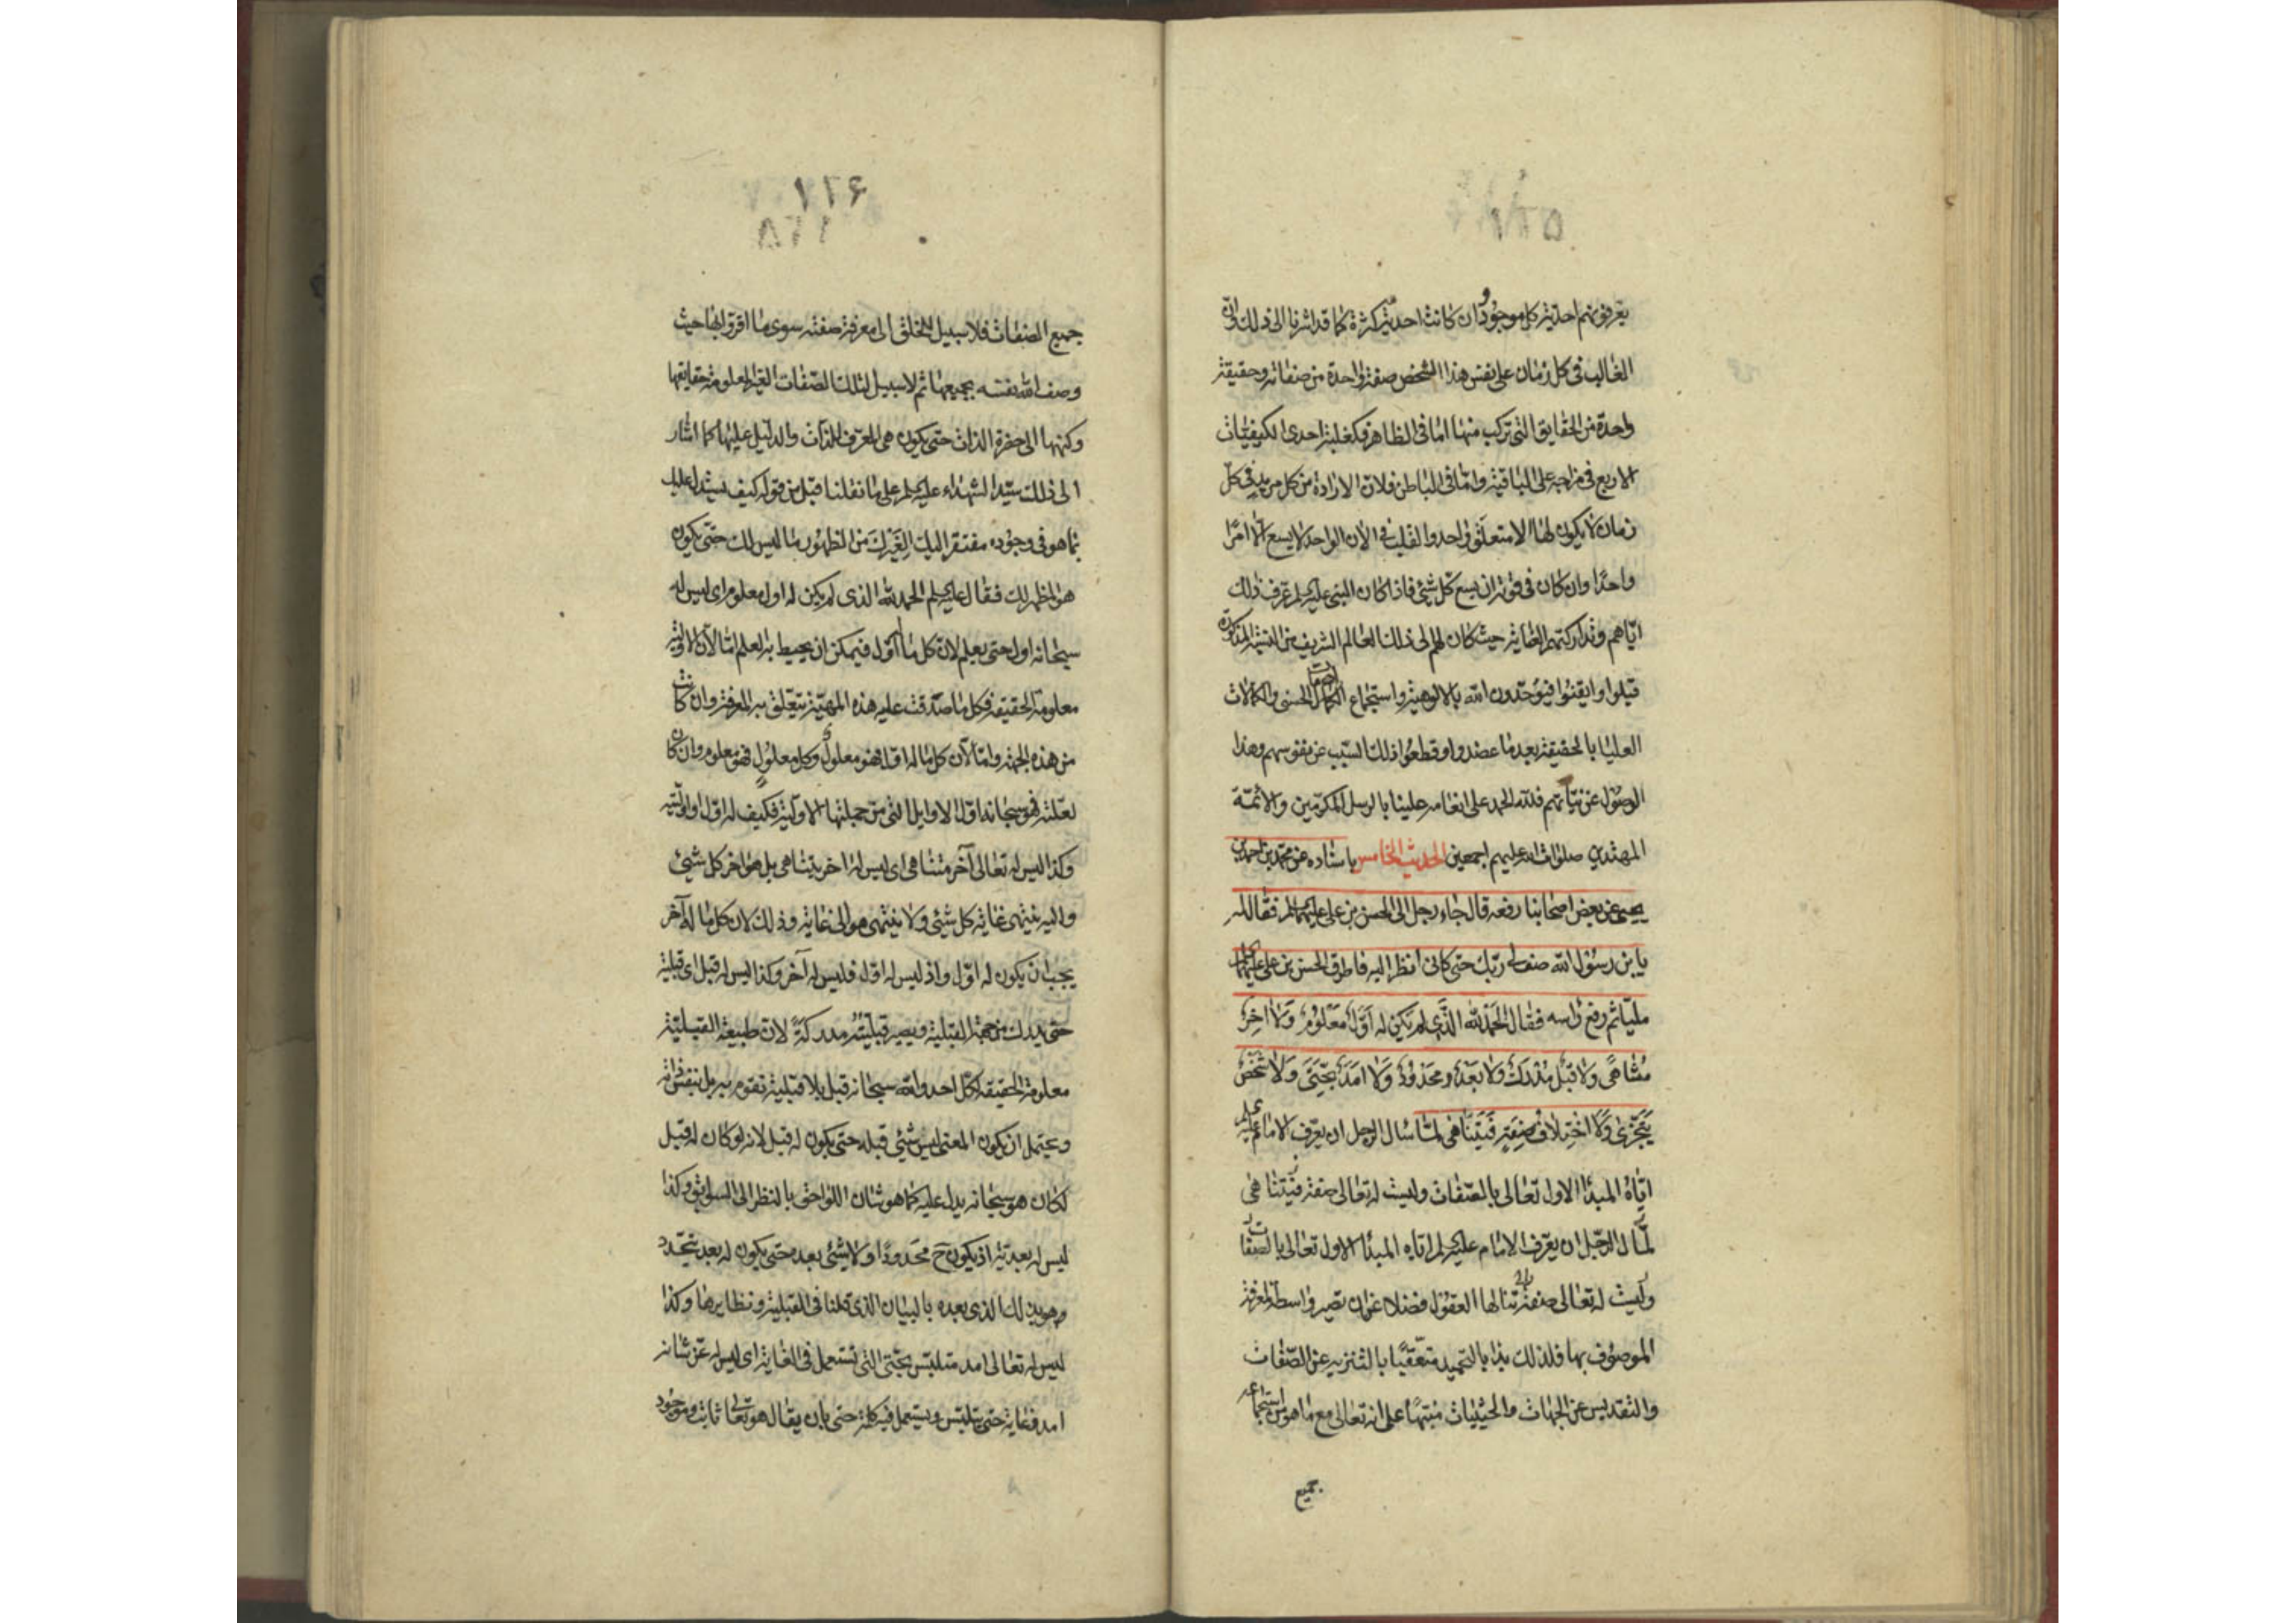 ۱۲۵
يعرفونهم احديّة كل موجود وان كانت احديّة كثرة كما قد اشرنا الى ذلك وانّ
الغالب فى كل زمان على نفس هذا الشخص صفة واحدة من صفاته وحقيقة
واحدة من الحقايق التى تركب منها امّا فى الظاهر فكغلبة احدى الكيفيّات
الاربع فى مزاجه على الباقية وامّا فى الباطن فلانّ الارادة من كل مريد فى كل
زمان لا يكون لها الا متعلّق واحد والقلب فى الآن الواحد لا يسع الا امرًا
واحدًا وان كان فى قوته ان يسع كل شئ فاذا كان النبى عليه السلم عرف ذلك
ايّاهم وتداركتهم العناية حيث كان لهم الى ذلك العالم الشريف من النسبة المذكورة
قبلوا وايقنوا فيوحّدون الله بالالوهية واستجماع الاسماء الحسنى والكمالات
العليا بالحقيقة بعد ما عضدوا وقطعوا ذلك السبب عن نفوسهم وهذا
الوصول عن نيّاتهم فلله الحمد على انعامه علينا بالرسل المكرّمين والائمّة
المهتدين صلوات الله عليهم اجمعين الحديث الخامس باسناده عن محمد بن احمد بن
يحيى عن بعض اصحابنا رفعه قال جاء رجل الى الحسن بن على عليهما السلم فقال له
يا بن رسول الله صف لى ربّك حتى كانى انظر اليه فاطرق الحسن بن على عليهما السلم
مليّا ثم رفع راسه فقال الحَمدُ لله الَّذِى لم يَكُن لَه اَوّلٌ مَعْلُومٌ وَلا اخِرٌ
مُتَناهى وَلا قَبْلٌ مُدْرَكٌ وَلا بَعْدٌ محَدُودٌ وَلا امَدٌ بِحَتّى وَلا شَخْصٌ
يَتَجَزّى وَلا اخْتِلافُ صِفَةٍ فَيَتَناهى لمّا سال الرجل ان يعرّف الامام عليه السلم
ايّاهُ المبدأ الاول تعالى بالصّفات وليست له تعالى صفة فيتناهى
لمّا سال الرّجل ان يعرّف الامام عليه السلم ايّاه المبدأ الاول تعالى بالصفات
وليست له تعالى صفة تنالها العقول فضلا عن ان تصير واسطة لمعرفة
الموصوف بها فلذلك بدأ بالتحميد متعقّبًا بالتنزيه عن الصّفات
والتقديس عن الجهات والحيثيات منبّهًا على انه تعالى مع ما هو من استجماعه
جميع
۱۲۶
۱۲۵
جميع الصفات فلا سبيل للخلق الى معرفة صفته سوى ما اقروا بها حيث
وصف الله نفسه بجميعها ثم لا سبيل لتلك الصّفات الغير المعلومة حقايقها
وكنهها الى حضرة الذات حتى يكون هى المعرّف للذات والدليل عليها كما اشار
الى ذلك سيّد الشهداء عليه السلم على ما نقلنا قبل من قوله كيف يستدل عليك
بما هو فى وجوده مفتقر اليك الِغَيرِكَ من الظهور ما ليس لك حتى يكون
هو المظهر لك فقال عليه السلم الحمد لله الذى لم يكن له اول معلوم اى ليس له
سبحانه اول حتى يعلم لانّ كل ما له اوّل فيمكن ان يحيط به العلم امّا لانّ الاولية
معلومة الحقيقة فكل ما صدّقت عليه هذه المهيّة يتعلّق به المعرفة وان كانت
من هذه الجهة وامّا لانّ كل ما له اوّل فهو معلول وكل معلولٍ فهو معلوم وان كان
لعلّته فهو سبحانه اوّل الاوايل التى من جملتها الاوليّة فكيف له اوّل واوليّة
وكذا ليس له تعالى آخر متناهى اى ليس له اخر يتناهى بل هو اخر كل شئ
واليه ينتهى غاية كل شئ ولا ينتهى هو الى غاية وذلك لان كل ما له آخر
يجب ان يكون له اوّل واذ ليس له اوّل فليس له آخر وكذا ليس له قبل اى قبلية
حتى يدرك من جهة القبلية ويصير قبليّته مدركةً لانّ طبيعة القبليّة
معلومة الحقيقة لكل احد والله سبحانه قبل بلا قبلية تقوم به بل بنفس ذاته
ويحتمل ان يكون المعنى ليس شئ قبله حتى يكون له قبل لانه لو كان له قبل
لكان هو سبحانه يدل عليه كما هو شان اللواحق بالنظر الى السوابق وكذا
ليس له بعديّة اذ يكون ح محدودًا ولا شئ بعده حتى يكون له بعد يتحدّد
وهو يدرك الذى بعده بالبيان الذى قلنا فى القبلية ونظايرها وكذا
ليس له تعالى امد متلبّس بحتى التى تستعمل فى الغاية اى ليس له عزّ شانه
امد وغاية حتى يتلبّس ويستعمل فيه كلمة حتى بان يقال هو تعالى ثابت وموجود